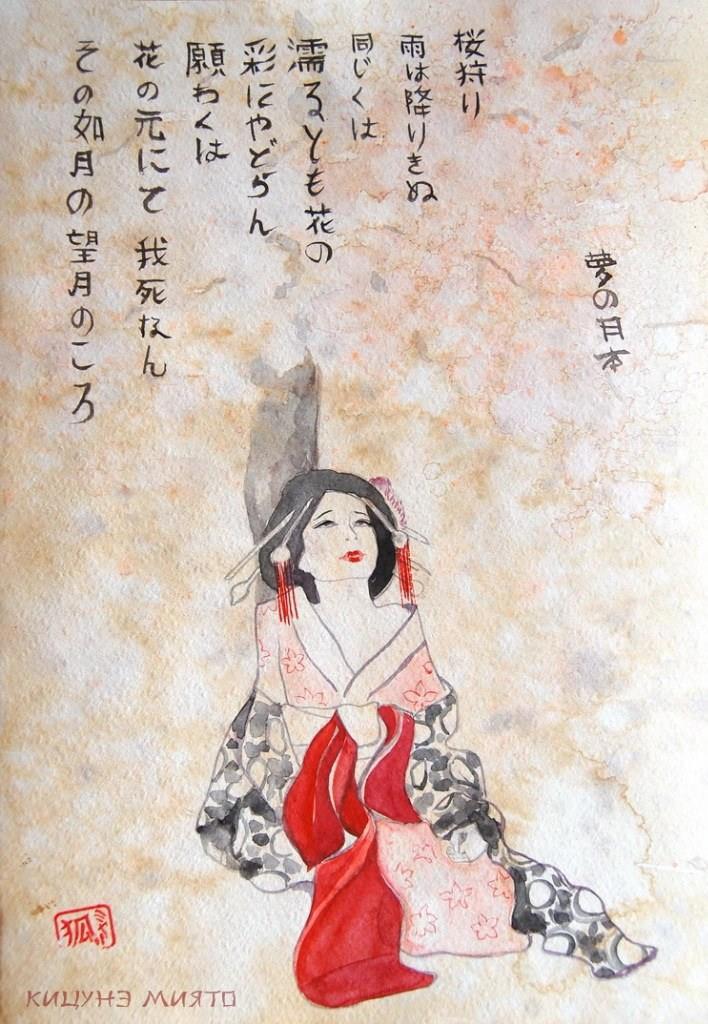 夢の日本
桜狩り
雨は降りきぬ
同じくは
濡るとも花の
彩にやどらん
願わくは
花の元にて 我死なん
その如月の望月のころ
狐
КИЦУНЭ МИЯТО